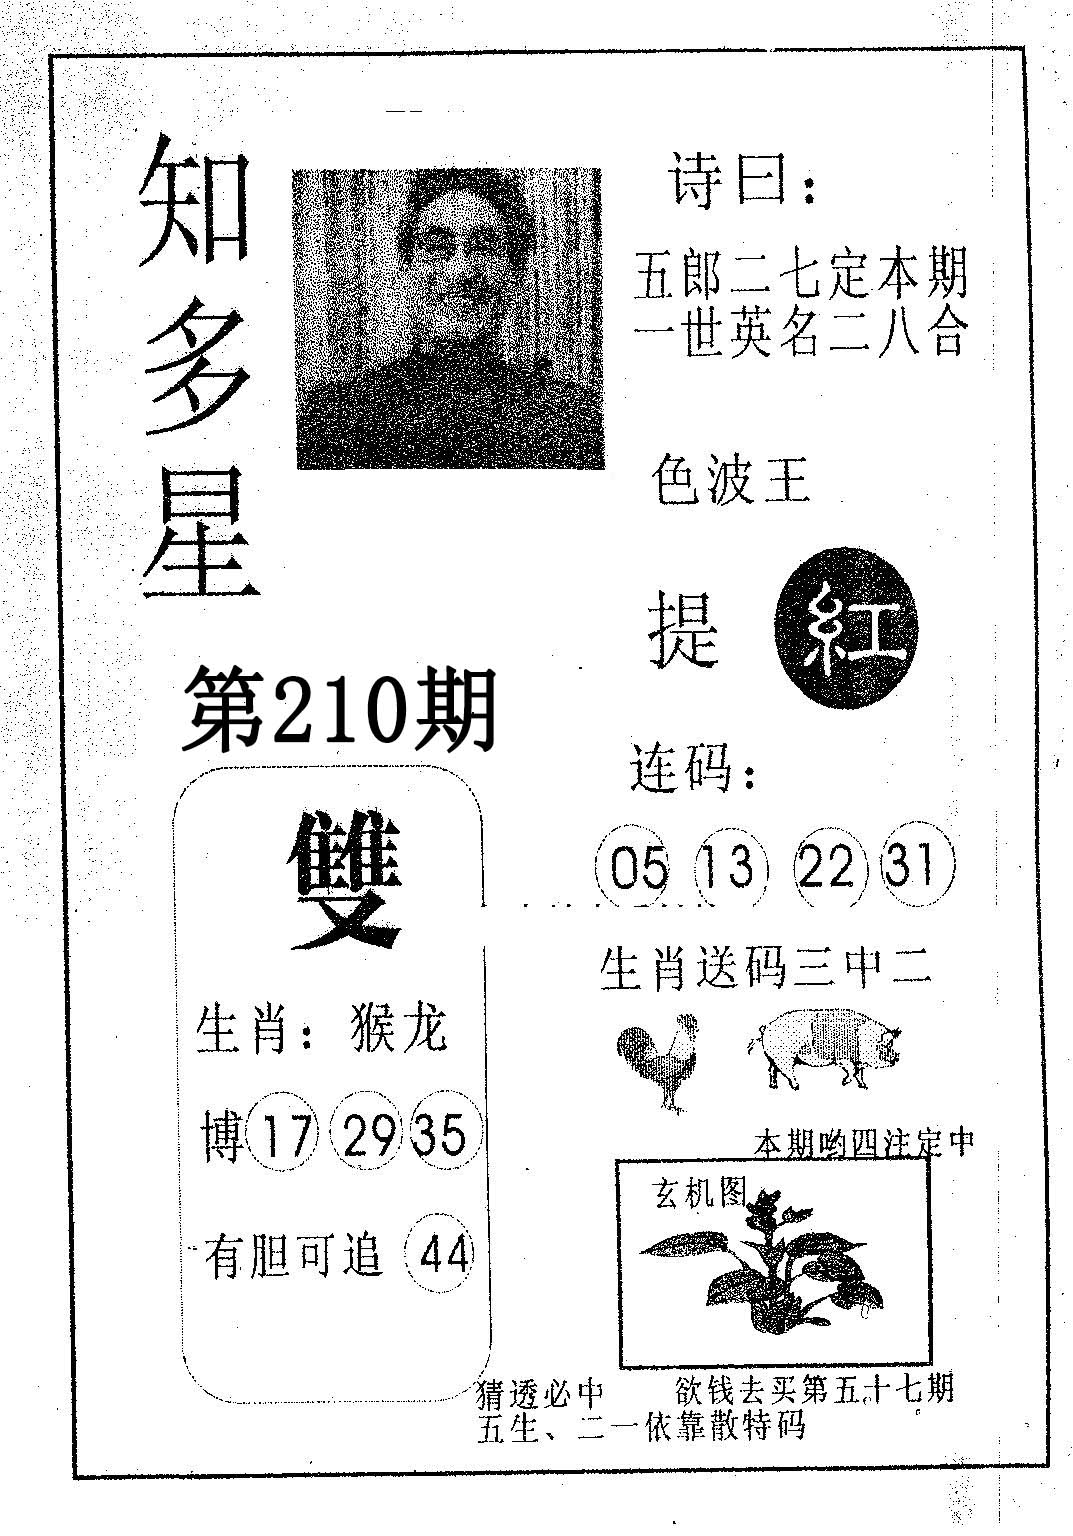 知多星
诗曰：
五郎二七定本期
一世英名二八合
色波王
提 紅
第210期
连码：
05 13 22 31
雙
生肖送码三中二
生肖：猴龙
博 17 29 35
本期哟四注定中
玄机图
有胆可追 44
猜透必中 欲钱去买第五十七期
五生、二一依靠散特码